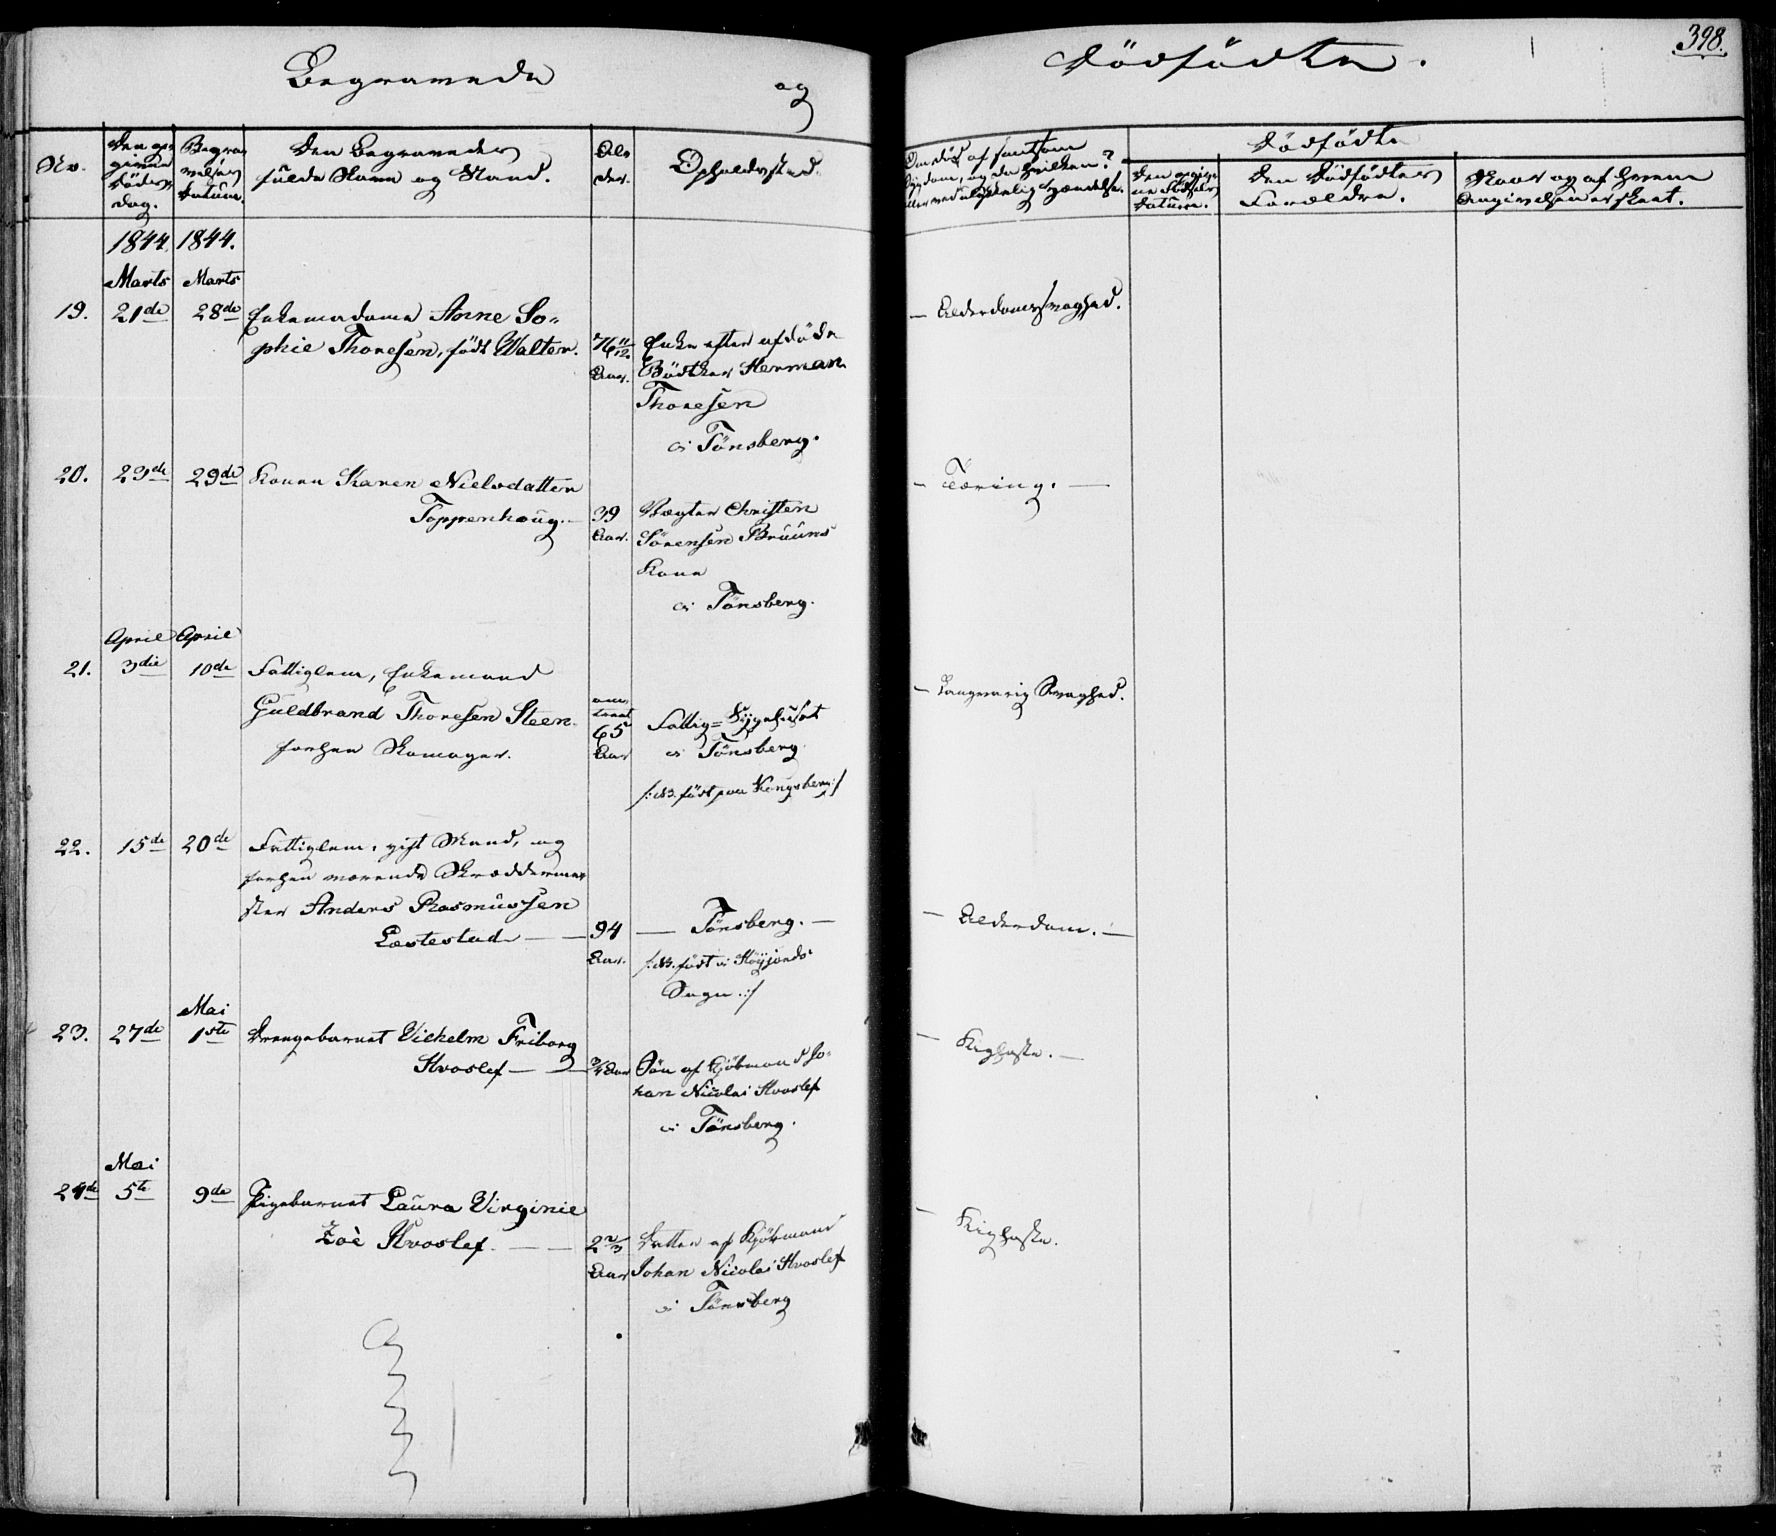 Begravede
og
Dödfödte.
398.
No.
Den op-
givne
Döds-
dag.
Begra-
velses
Datum.
Den Begravedes
fulde Navn og Stand.
Al-
der.
Opholdssted.
Om död af smitsom
Sygdom, og da hvilken?
eller ved ulykkelig Hændelse.
Dödfödte
Den opgiv-
ne Födsels
Datum.
Den Dödfödtes
Forældre.
Naar og af hvem
Angivelsen er skeet.
1844. 1844.
Marts Marts
19. 21de 28de Enkemadame Anne So-
phie Thoresen, födt Walter.
76 11/12
Aar.
Enke efter afdöde
Bödtker Herman
Thoresen
i Tönsberg.
— Alderdomssvaghed.
20. 23de 29de Konen Karen Nielsdatter
Toppenhoug. —
39
Aar.
Vægter Christen
Sörensen Bruuns
Kone
i Tönsberg.
— Tæring. —
April April
21. 3die 10de Fattiglem, Enkemand
Guldbrand Thoresen Steen
forhen Skomager.
om-
trent
65
Aar
Fattig- Sygehuset
i Tönsberg
/: NB. födt paa Kongsberg :/
— Langvarig Svaghed.
22. 15de 20de Fattiglem, gift Mand, og
forhen værende Skræddermes-
ter Anders Rasmussen
Læstestad — —
94
Aar.
— Tönsberg. —
/: NB. födt i Höyjords
Sogn. :/
— Alderdom. —
Mai
23. 27de 1ste Drengebarnet Vilhelm Friborg
Hvoslef — —
Aar
Sön af Kjöbmand Jo-
han Nicolai Hvoslef
i Tönsberg.
— Kighoste. —
Mai
24de 5te 9de Pigebarnet Laura Virginie
Zoè Hvoslef. — —
2 2/3
Aar
Datter af Kjöbmand
Johan Nicolai Hvoslef
i Tönsberg
— Kighoste.